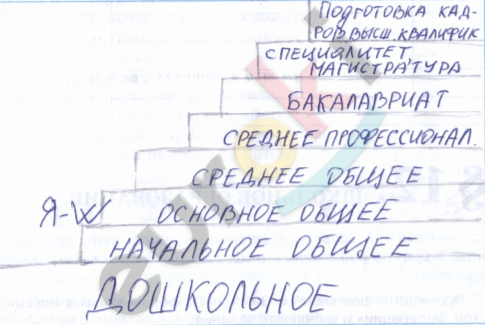 ПОДГОТОВКА КАД-
РОВ ВЫСШ. КВАЛИФИК
СПЕЦИАЛИТЕТ,
МАГИСТРАТУРА
БАКАЛАВРИАТ
СРЕДНЕЕ ПРОФЕССИОНАЛ.
СРЕДНЕЕ ОБЩЕЕ
Я-
ОСНОВНОЕ ОБЩЕЕ
НАЧАЛЬНОЕ ОБЩЕЕ
ДОШКОЛЬНОЕ